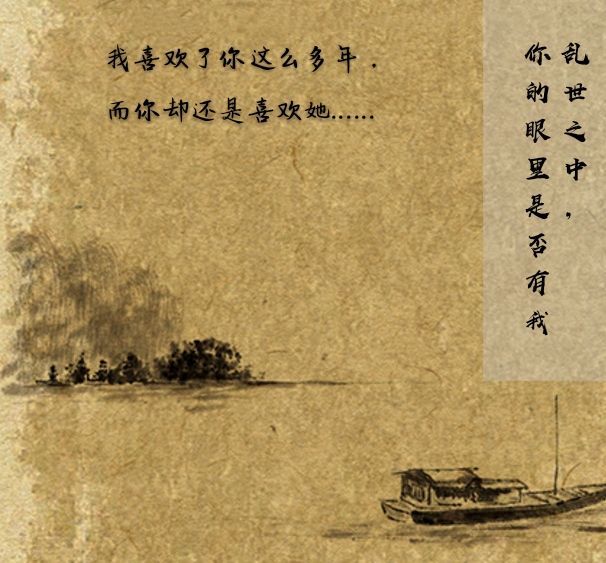 我喜欢了你这么多年．
而你却还是喜欢她……
乱世之中，
你的眼里是否有我